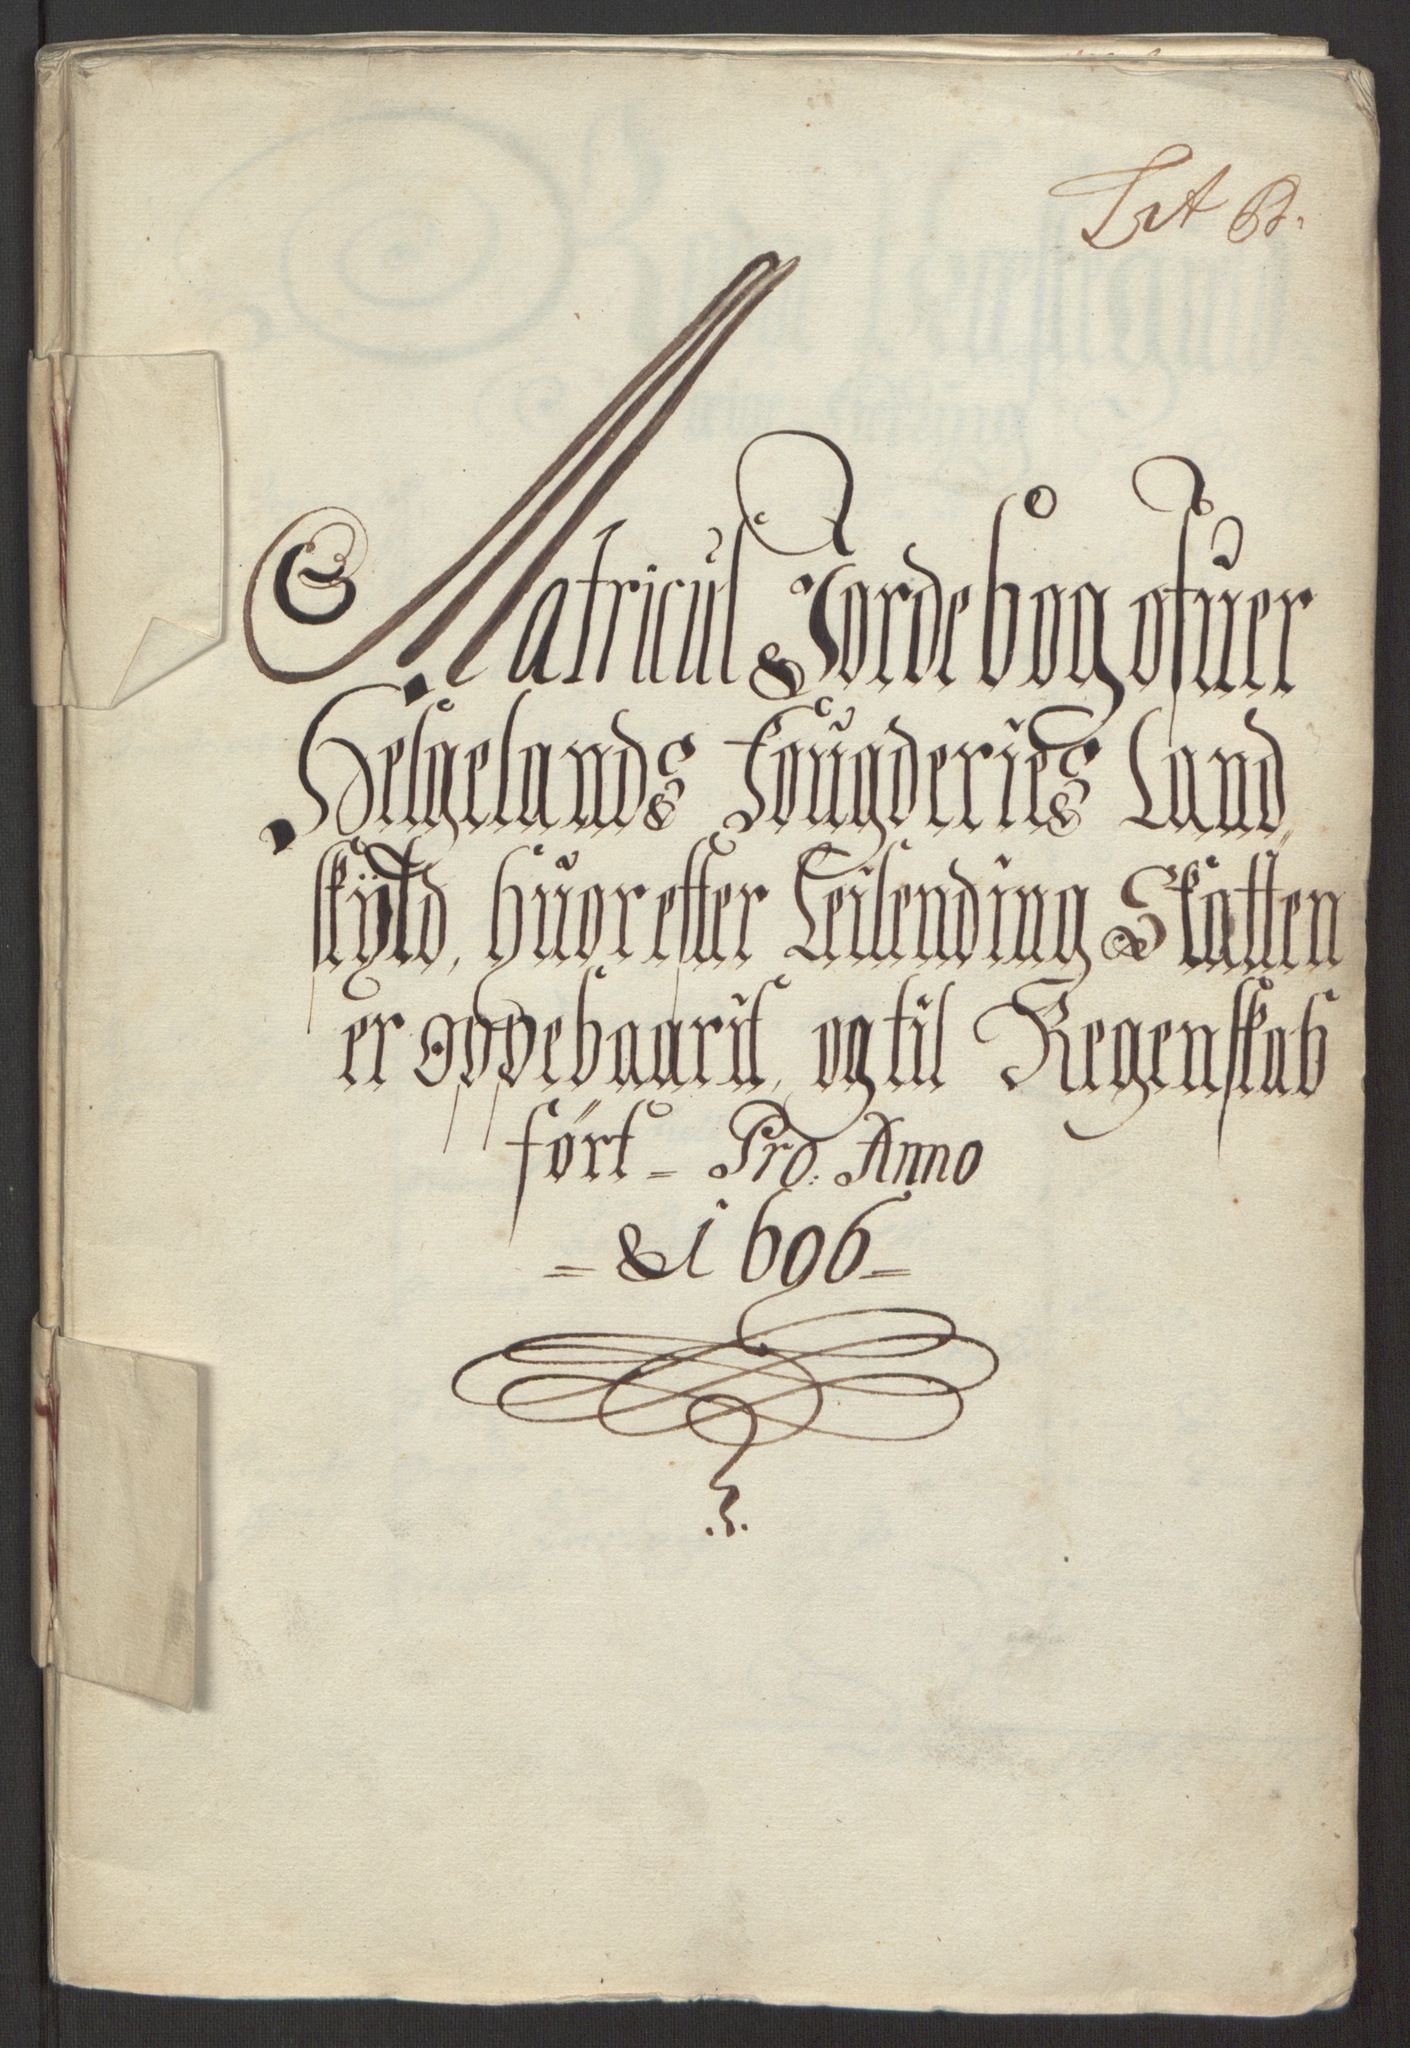 Lit B.
Matricul Jordebog ofuer
Helgelands Fougderies Land„
skÿld, huorefter Leilending Skatten
er oppebaarit, og til Regenskab
ført - Pro. Anno
= 1696 =